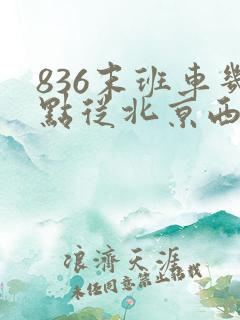 836末班車幾
點從北京西
浪濟天涯
未经同意禁止转载